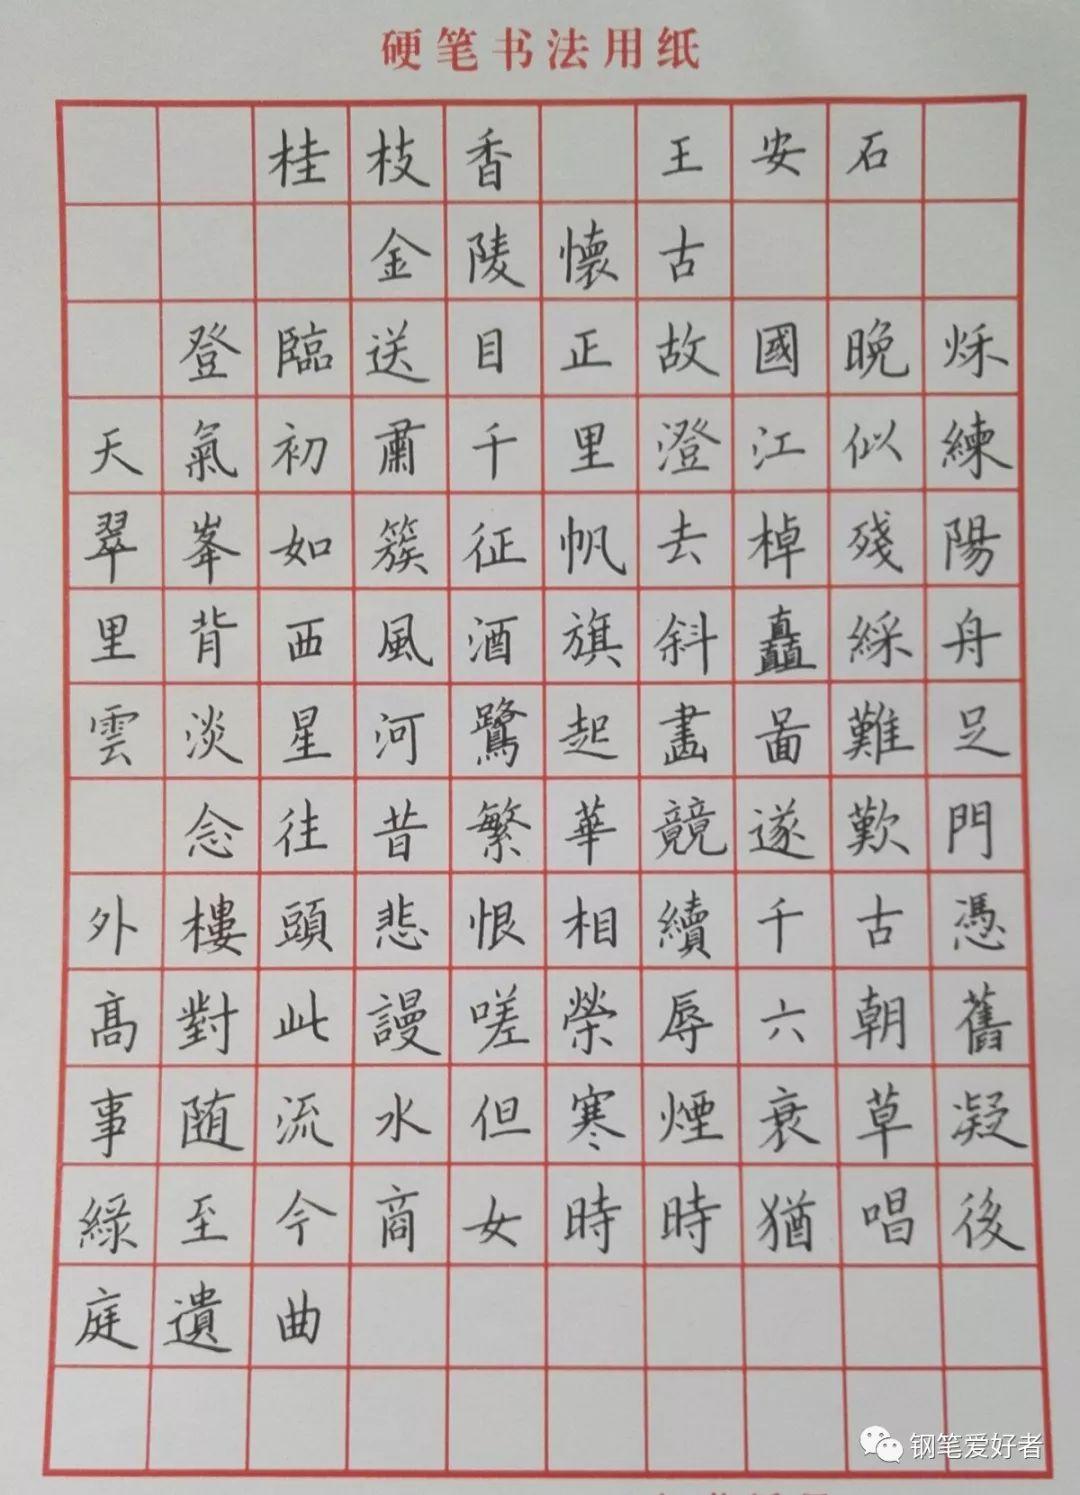 硬笔书法用纸
桂枝香 王安石
金陵懷古
登臨送目正故國晚烁
天氣初肅千里澄江似練
翠峯如簇征帆去棹殘陽
里背西風酒旗斜矗綵舟
雲淡星河鷺起畫啚難足
念往昔繁華競遂歎門
外樓頭悲恨相續千古憑
高對此謾嗟榮辱六朝舊
事随流水但寒煙衰草凝
綠至今商女時時猶唱後
庭遺曲
钢笔爱好者